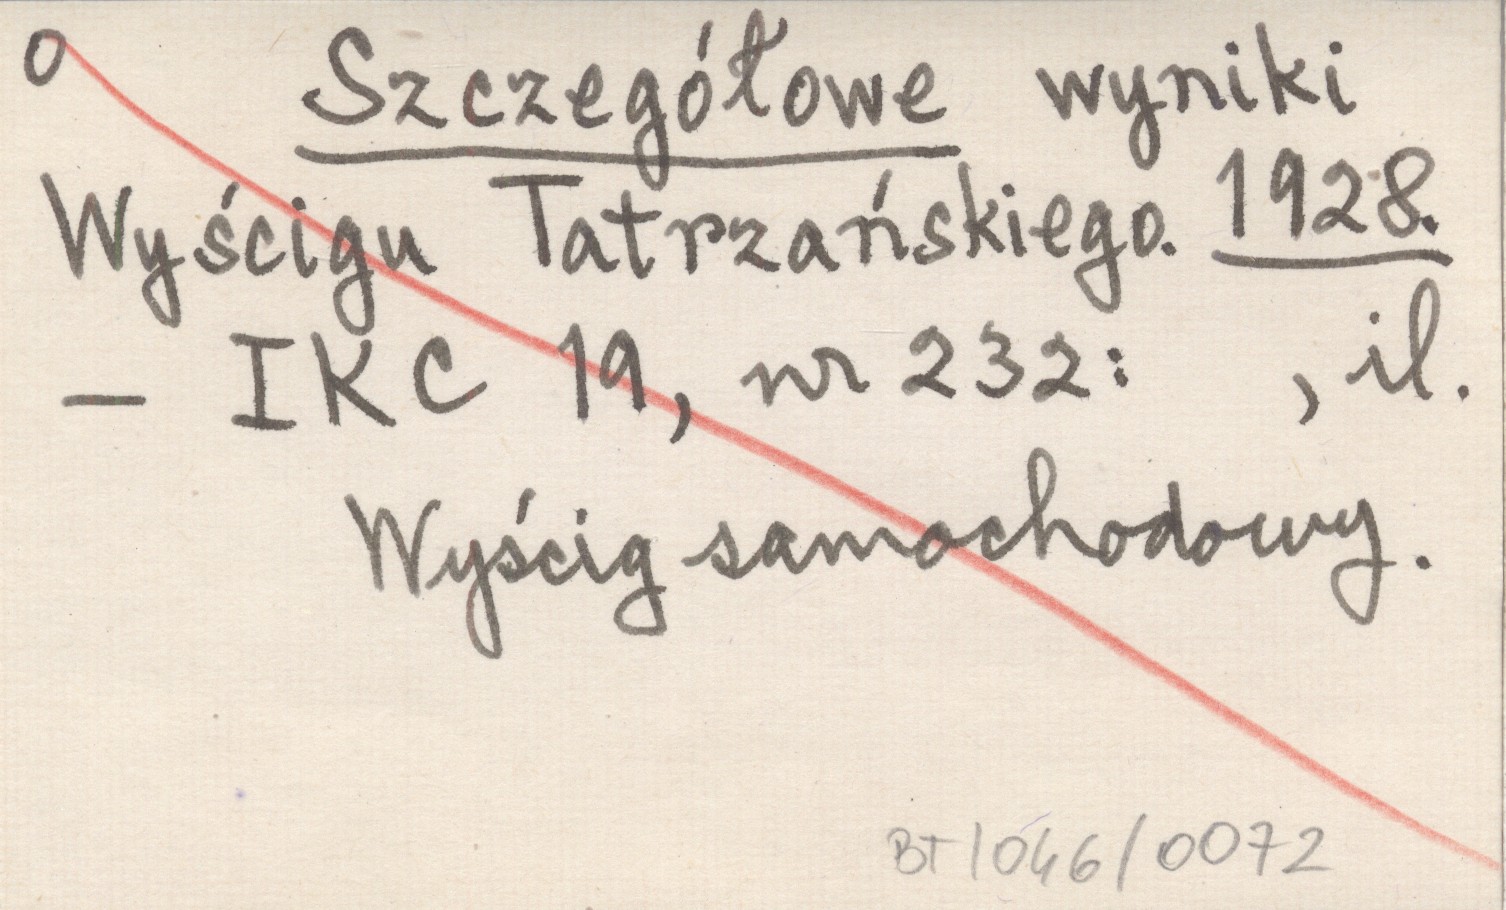 O Szczegółowe wyniki
Wyścigu Tatrzańskiego. 1928.
— IKC 19, nr 232: , il.
Wyścig samochodowy.
BT/046/0072